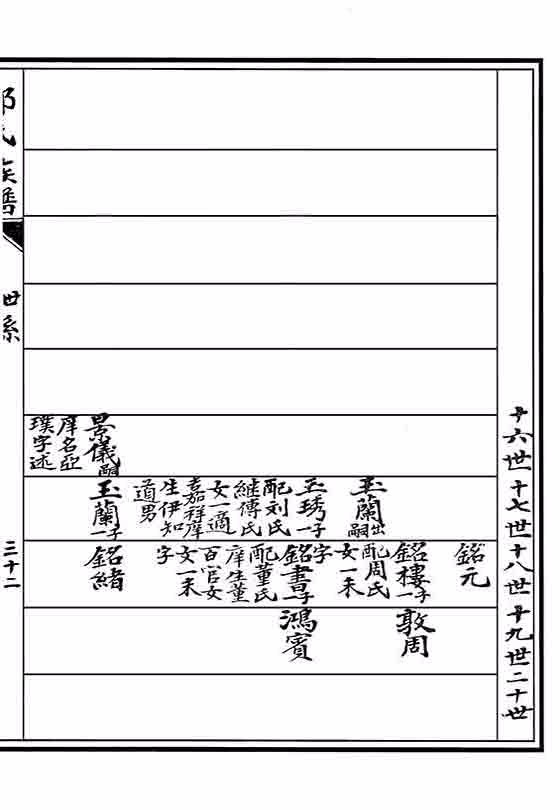 十六世
十七世
十八世
十九世
二十世
景儀嗣
庠名亞
璞字述
玉蘭出嗣
玉琇一子
配刘氏
継傅氏
女一適
嘉祥庠
生伊知
道男
玉蘭一子
銘元
銘樓一子
配周氏
女一未
字
銘書一子
配董氏
庠生董
百官女
女一未
字
銘緒
敦周
鴻賓
氏族譜
世系
三十二